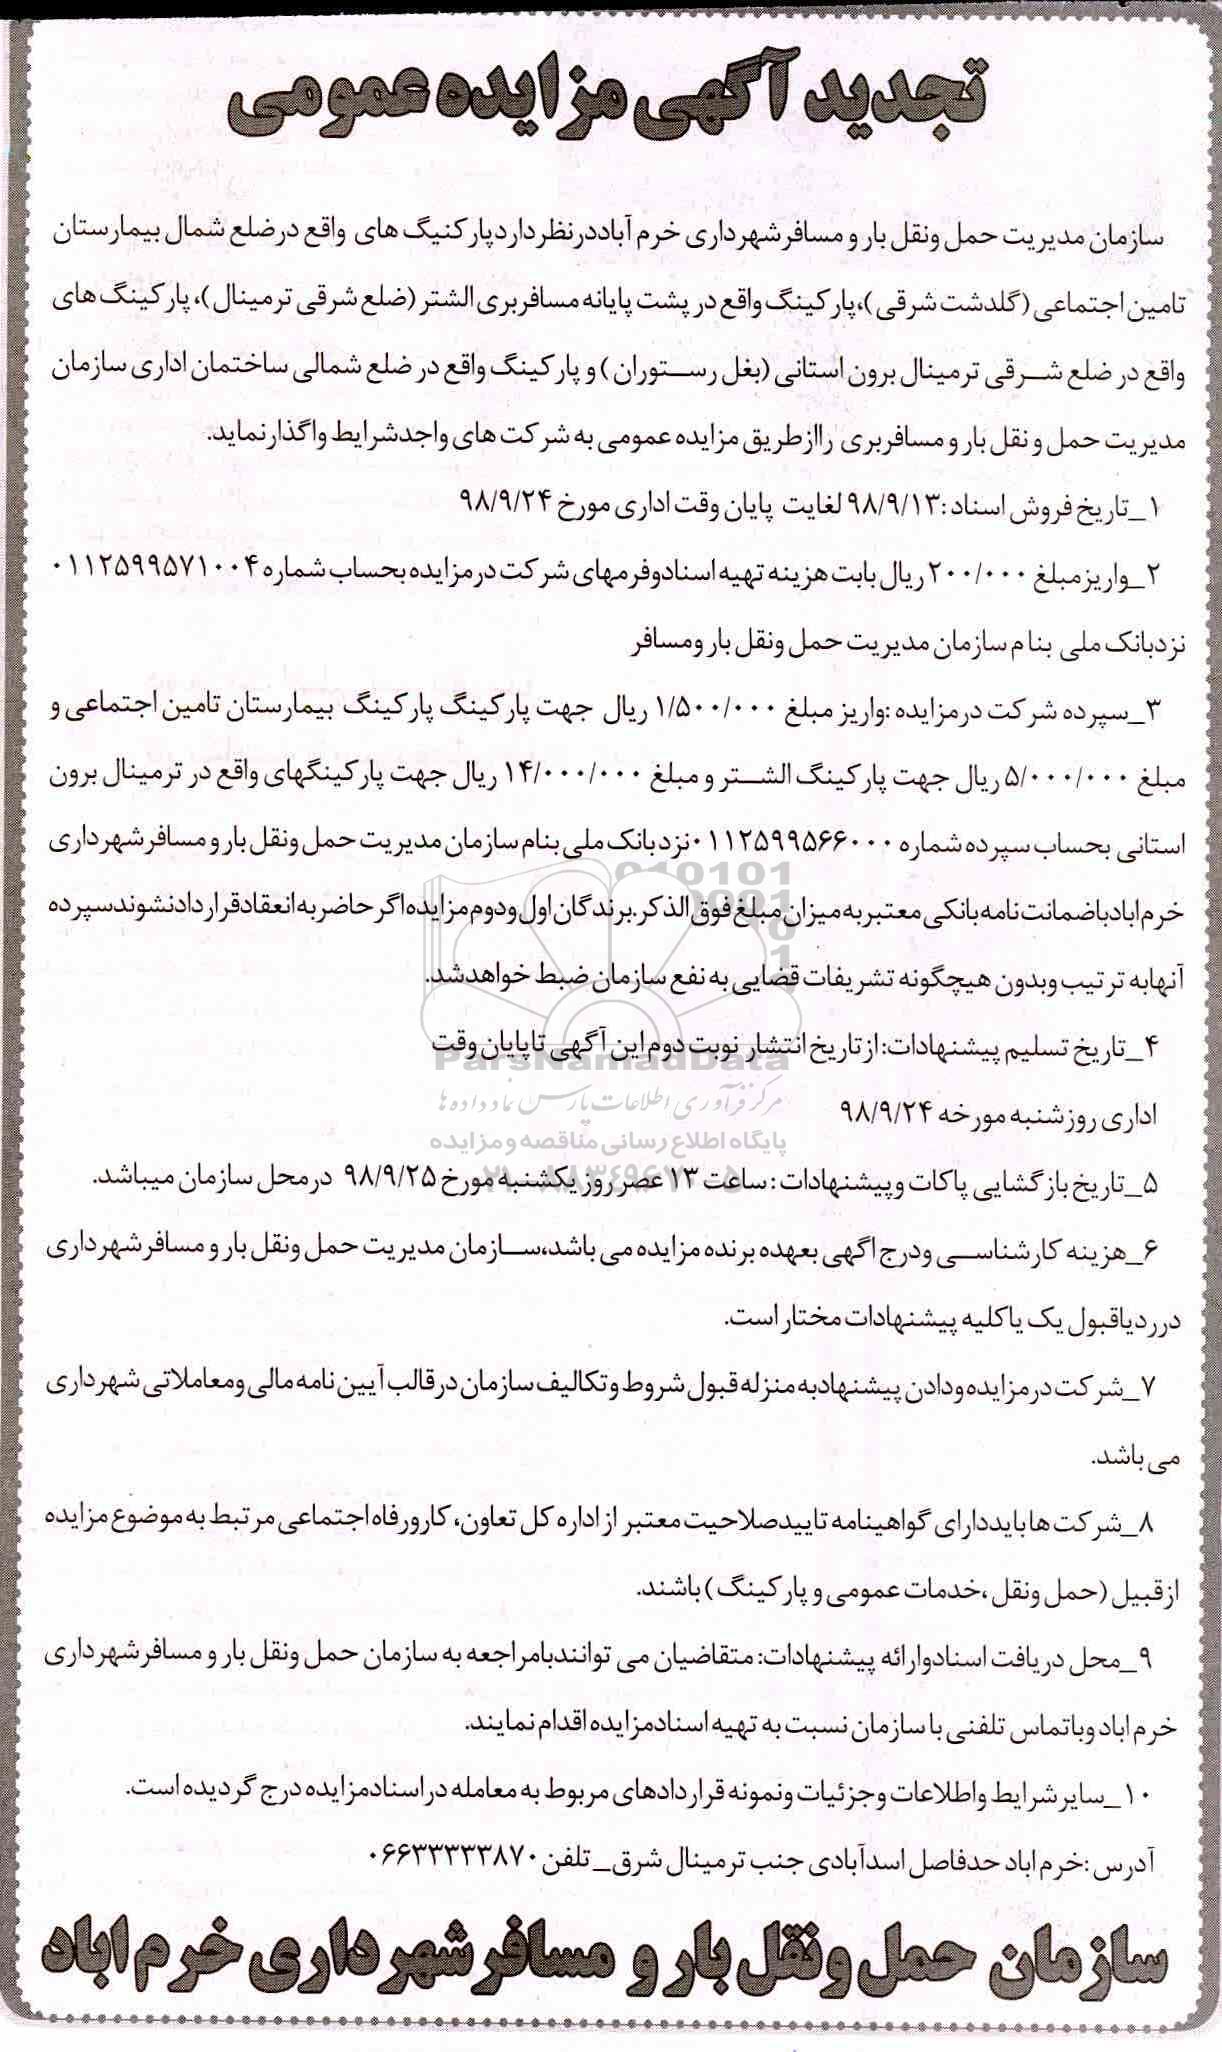 تجدید آگهی مزایده عمومی
سازمان مدیریت حمل ونقل بار و مسافرشهرداری خرم آباددرنظرداردپارکنیگ های واقع درضلع شمال بیمارستان
تامین اجتماعی (گلدشت شرقی)،پارکینگ واقع در پشت پایانه مسافربری الشتر (ضلع شرقی ترمینال)، پارکینگ های
واقع در ضلع شرقی ترمینال برون استانی (بغل رستوران) و پارکینگ واقع در ضلع شمالی ساختمان اداری سازمان
مدیریت حمل و نقل بار و مسافربری رااز طریق مزایده عمومی به شرکت های واجدشرایط واگذارنماید.
۱_تاریخ فروش اسناد :۹۸/۹/۱۳ لغایت پایان وقت اداری مورخ ۹۸/۹/۲۴
۲_واریزمبلغ ۲۰۰/۰۰۰ ریال بابت هزینه تهیه اسنادوفرمهای شرکت درمزایده بحساب شماره ۰۱۱۲۵۹۹۵۷۱۰۰۴
نزدبانک ملی بنام سازمان مدیریت حمل ونقل بار ومسافر
۳_سپرده شرکت درمزایده :واریز مبلغ ۱/۵۰۰/۰۰۰ ریال جهت پارکینگ پارکینگ بیمارستان تامین اجتماعی و
مبلغ ۵/۰۰۰/۰۰۰ ریال جهت پارکینگ الشتر و مبلغ ۱۴/۰۰۰/۰۰۰ ریال جهت پارکینگهای واقع در ترمینال برون
استانی بحساب سپرده شماره ۰۱۱۲۵۹۹۵۶۶۰۰۰ نزدبانک ملی بنام سازمان مدیریت حمل ونقل بار و مسافرشهرداری
خرم ابادباضمانت نامه بانکی معتبربه میزان مبلغ فوق الذکر.برندگان اول ودوم مزایده اگر حاضر به انعقادقراردادنشوندسپرده
آنهابه ترتیب وبدون هیچگونه تشریفات قضایی به نفع سازمان ضبط خواهدشد.
۴_تاریخ تسلیم پیشنهادات: ازتاریخ انتشار نوبت دوم این آگهی تاپایان وقت
ParsNamadData
مرکز فرآوری اطلاعات پارس نماد داده ها
اداری روزشنبه مورخه ۹۸/۹/۲۴
پایگاه اطلاع رسانی مناقصه و مزایده
۵_تاریخ بازگشایی پاکات وپیشنهادات : ساعت ۱۳ عصر روز یکشنبه مورخ ۹۸/۹/۲۵ درمحل سازمان میباشد.
۶_هزینه کارشناسی ودرج اگهی بعهده برنده مزایده می باشد،سازمان مدیریت حمل ونقل بار و مسافرشهرداری
درردیاقبول یک یاکلیه پیشنهادات مختار است.
۷_شرکت درمزایده ودادن پیشنهادبه منزله قبول شروط وتکالیف سازمان درقالب آیین نامه مالی ومعاملاتی شهرداری
می باشد.
۸_شرکت هابایددارای گواهینامه تاییدصلاحیت معتبر از اداره کل تعاون، کارورفاه اجتماعی مرتبط به موضوع مزایده
ازقبیل (حمل ونقل ،خدمات عمومی و پارکینگ) باشند.
۹_محل دریافت اسنادوارائه پیشنهادات: متقاضیان می توانندبامراجعه به سازمان حمل ونقل بار و مسافرشهرداری
خرم اباد وباتماس تلفنی با سازمان نسبت به تهیه اسنادمزایده اقدام نمایند.
۱۰_سایرشرایط واطلاعات وجزئیات ونمونه قراردادهای مربوط به معامله در اسنادمزایده درج گردیده است.
آدرس :خرم اباد حدفاصل اسدآبادی جنب ترمینال شرق_ تلفن ۰۶۶۳۳۳۳۳۸۷۰
سازمان حمل ونقل بار و مسافرشهرداری خرم اباد